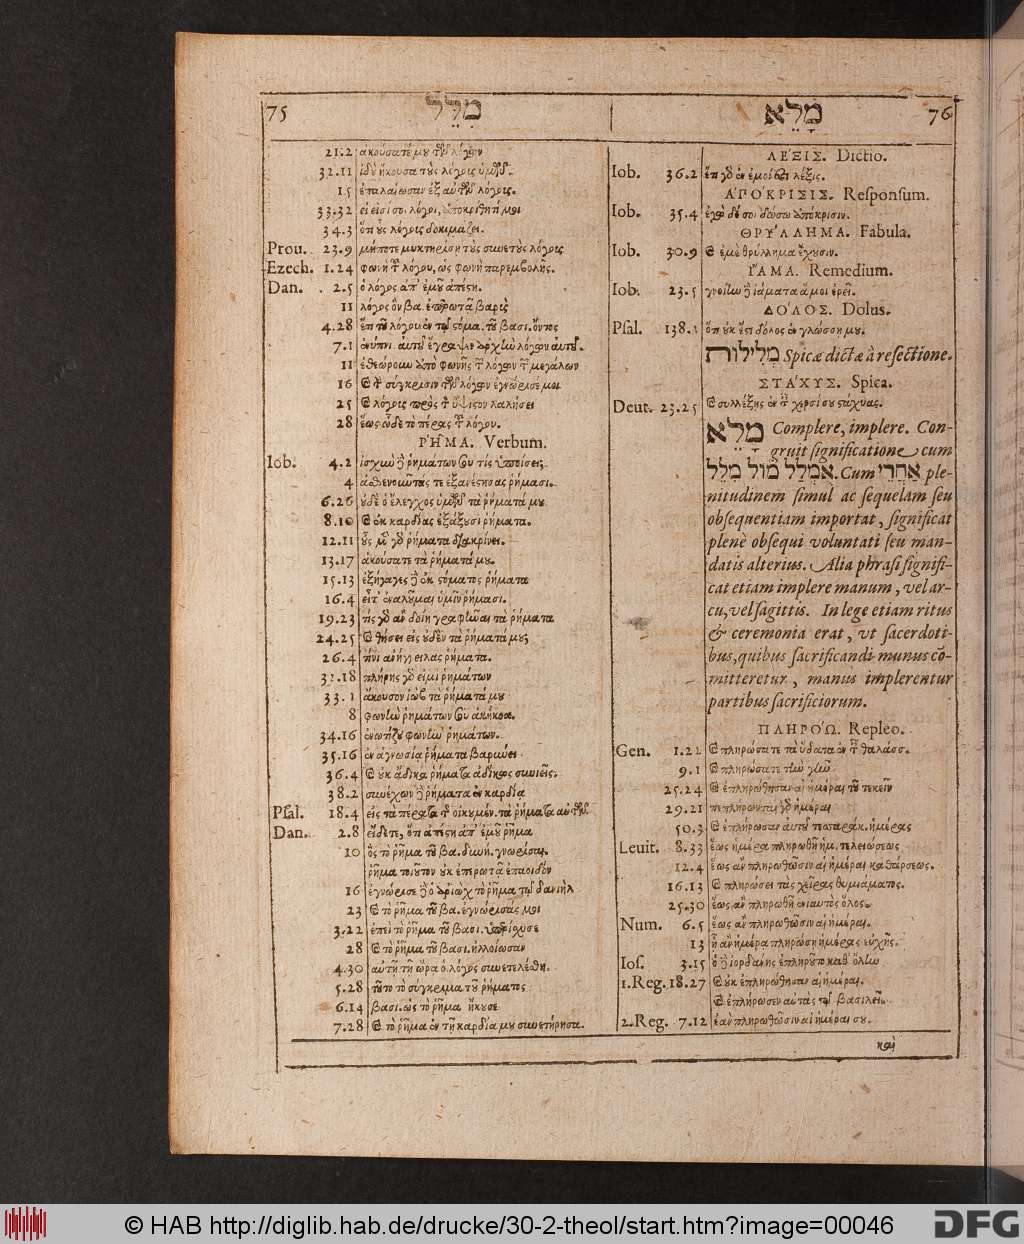 75 מִלֵּל
21.2 ἀκούσατέ μου τῶν λόγων
32.11 ἰδοὺ ἤκουσα τοὺς λόγους ὑμῶν
15 ἐπαλαίωσαν ἐξ αὐτῶν λόγους.
33.32 εἰ εἰσί σοι λόγοι, ἀποκρίθητί μοι
34.3 ὅτι οὖς λόγους δοκιμάζει.
Prou. 23.9 μήποτε μυκτηρίσῃ τοὺς συνετοὺς λόγους
Ezech. 1.24 φωνὴ τοῦ λόγου, ὡς φωνὴ παρεμβολῆς.
Dan. 2.5 ὁ λόγος ἀπ' ἐμοῦ ἀπέστη.
11 λόγος ὃν βα. ἐπερωτᾷ βαρὺς
4.28 ἔτι τοῦ λόγου ἐν τῷ στόμα. τοῦ βασι. ὄντος
7.1
11 ἐθεώρουν ἀπὸ φωνῆς τῶν λόγων τῶν μεγάλων
16 καὶ τὴν σύγκρισιν τῶν λόγων ἐγνώρισέ μοι
25 καὶ λόγους πρὸς τὸν ὕψιστον λαλήσει
28 ἕως ὧδε τὸ πέρας τοῦ λόγου.
ΡΗ͂ΜΑ. Verbum.
Iob. 4.2 ἰσχὺν δὲ ῥημάτων σου τίς ὑποίσει;
4 ἀσθενοῦντάς τε ἐξανέστησας ῥήμασι.
6.26 οὐδὲ ὁ ἔλεγχος ὑμῶν τὰ ῥήματά μου
8.10 καὶ ἐκ καρδίας ἐξάξουσι ῥήματα.
12.11 οὖς μὲν γὰρ ῥήματα διακρίνει.
13.17 ἀκούσατε τὰ ῥήματά μου.
15.13 ἐξήγαγες δὲ ἐκ στόματος ῥήματα
16.4 εἶτ' ἐναλοῦμαι ὑμῖν ῥήμασι.
19.23 τίς γὰρ ἂν δοίη γραφῆναι τὰ ῥήματα
24.25 καὶ θήσει εἰς οὐδὲν τὰ ῥήματά μου;
26.4 τίνι ἀνήγγειλας ῥήματα.
32.18 πλήρης γάρ εἰμι ῥημάτων
33.1 ἄκουσον ἰὼβ τὰ ῥήματά μου
8 φωνὴν ῥημάτων σου ἀκήκοα.
34.16 ἐνωτίζου φωνὴν ῥημάτων.
35.16 ἐν ἀγνωσίᾳ ῥήματα βαρύνει.
36.4 καὶ οὐκ ἄδικα ῥήματα ἀδίκως συνιεῖς.
38.2 συνέχων δὲ ῥήματα ἐν καρδίᾳ
Psal. 18.4 εἰς τὰ πέρατα τῆς οἰκουμέν. τὰ ῥήματα αὐτῶν.
Dan. 2.8 εἴδετε, ὅτι ἀπέστη ἀπ' ἐμοῦ ῥῆμα
10 ὃς τὸ ῥῆμα τοῦ βα. δυνή. γνωρίσαι.
ῥῆμα τοιοῦτον οὐκ ἐπερωτᾷ ἐπαοιδὸν
16 ἐγνώρισε δὲ ὁ ἀριὼχ τὸ ῥῆμα τῷ δανιὴλ
23 καὶ τὸ ῥῆμα τοῦ βα. ἐγνώρισάς μοι
3.22 ἐπεὶ τὸ ῥῆμα τοῦ βασι. ὑπερίσχυσε
28 καὶ τὸ ῥῆμα τοῦ βασι. ἠλλοίωσαν
4.30 αὐτῇ τῇ ὥρᾳ ὁ λόγος συνετελέσθη.
5.28 τοῦτο τὸ σύγκριμα τοῦ ῥήματος
6.14 βασι. ὡς τὸ ῥῆμα ἤκουσε
7.28 καὶ τὸ ῥῆμα ἐν τῇ καρδίᾳ μου συνετήρησα.
מָלֵא 76
ΛΕΞΙΣ. Dictio.
Iob. 36.2 ἔτι γὰρ ἐν ἐμοί ἐστι λέξις.
ἈΠΟΚΡΙΣΙΣ. Responsum.
Iob. 35.4 ἐγὼ δέ σοι δώσω ἀπόκρισιν.
ΘΡΥΛΛΗΜΑ. Fabula.
Iob. 30.9 καὶ ἐμὲ θρύλλημα ἔχουσιν.
ἸΑΜΑ. Remedium.
Iob. 23.5 γνοίην δὲ ἰάματα ἅ μοι ἐρεῖ.
ΔΟΛΟΣ. Dolus.
Psal. 138.3 ὅτι οὐκ ἔστι δόλος ἐν γλώσσῃ μου.
מְלִילוֹת Spicæ dictæ à resectione.
ΣΤΑΧΥΣ. Spica.
Deut. 23.25 καὶ συλλέξῃς ἐν ταῖς χερσί σου στάχυας.
מָלֵא Complere, implere. Con-
gruit significatione cum
אָמְלַל מוּל מָלַל. Cum אַחֲרֵי ple-
nitudinem simul ac sequelam seu
obsequentiam importat, significat
plenè obsequi voluntati seu man-
datis alterius. Alia phrasi signifi-
cat etiam implere manum, vel ar-
cu, vel sagittis. In lege etiam ritus
& ceremonia erat, vt sacerdoti-
bus, quibus sacrificandi munus cō-
mitteretur, manus implerentur
partibus sacrificiorum.
ΠΛΗΡΟΩ. Repleo.
Gen. 1.22 καὶ πληρώσατε τὰ ὕδατα ἐν ταῖς θαλάσσ.
9.1 καὶ πληρώσατε τὴν γῆν
25.24 καὶ ἐπληρώθησαν αἱ ἡμέραι τοῦ τεκεῖν
29.21 πεπλήρωνται γὰρ ἡμέραι
50.3 καὶ ἐπλήρωσαν αὐτοῦ τεσσαράκ. ἡμέρας
Leuit. 8.33 ἕως ἡμέρα πληρωθῇ ἡμ. τελειώσεως
12.4 ἕως ἂν πληρωθῶσιν αἱ ἡμέραι καθάρσεως.
16.13 καὶ πλήσει τὰς χεῖρας θυμιάματος.
25.30 ἕως ἂν πληρωθῇ ἐνιαυτὸς ὅλος.
Num. 6.5 ἕως ἂν πληρωθῶσιν αἱ ἡμέραι.
13 ᾗ ἂν ἡμέρᾳ πληρώσῃ ἡμέρας εὐχῆς.
Ios. 3.15 ὁ δὲ ἰορδάνης ἐπληροῦτο καθ' ὅλην
1.Reg. 18.27 καὶ οὐκ ἐπληρώθησαν αἱ ἡμέραι.
καὶ ἐπλήρωσεν αὐτὰς τῷ βασιλεῖ.
2.Reg. 7.12 ἐὰν πληρωθῶσιν αἱ ἡμέραι σου.
καὶ
© HAB http://diglib.hab.de/drucke/30-2-theol/start.htm?image=00046
DFG